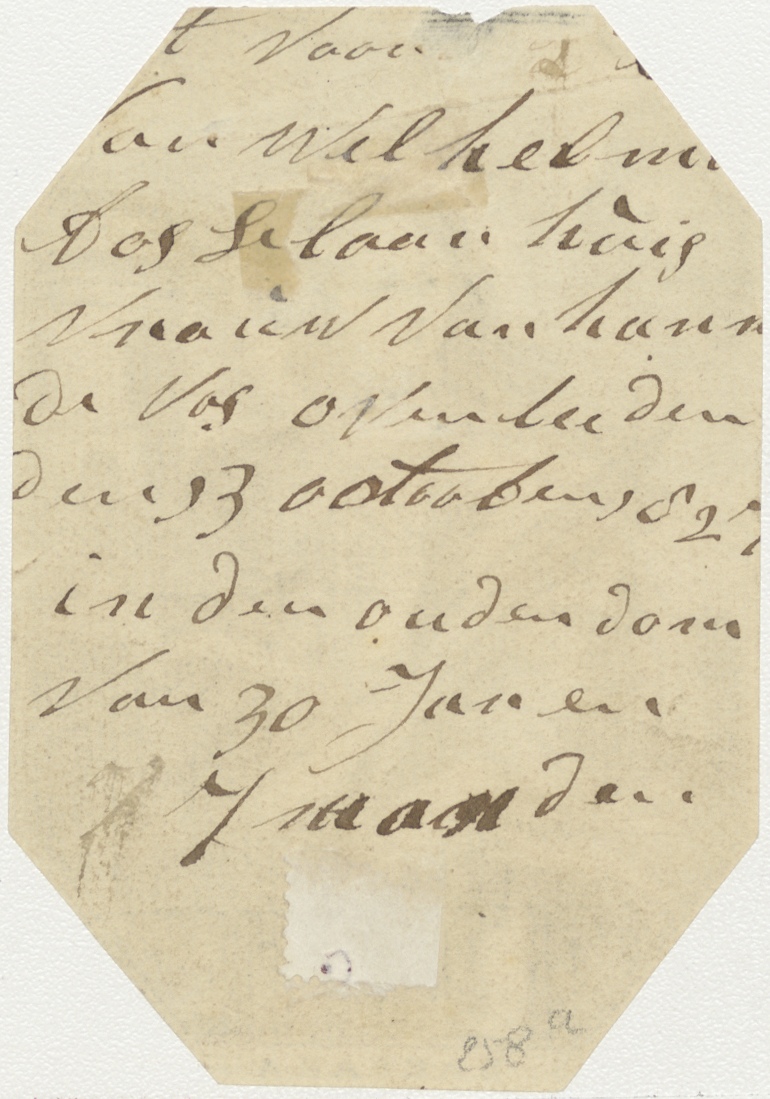 t voor
van Wilhelmi
huis
vrouw van hann
de Vos overleeden
den 13 octoober 1827
in den ouderdom
van 30 Jaren
7 maanden
258 a